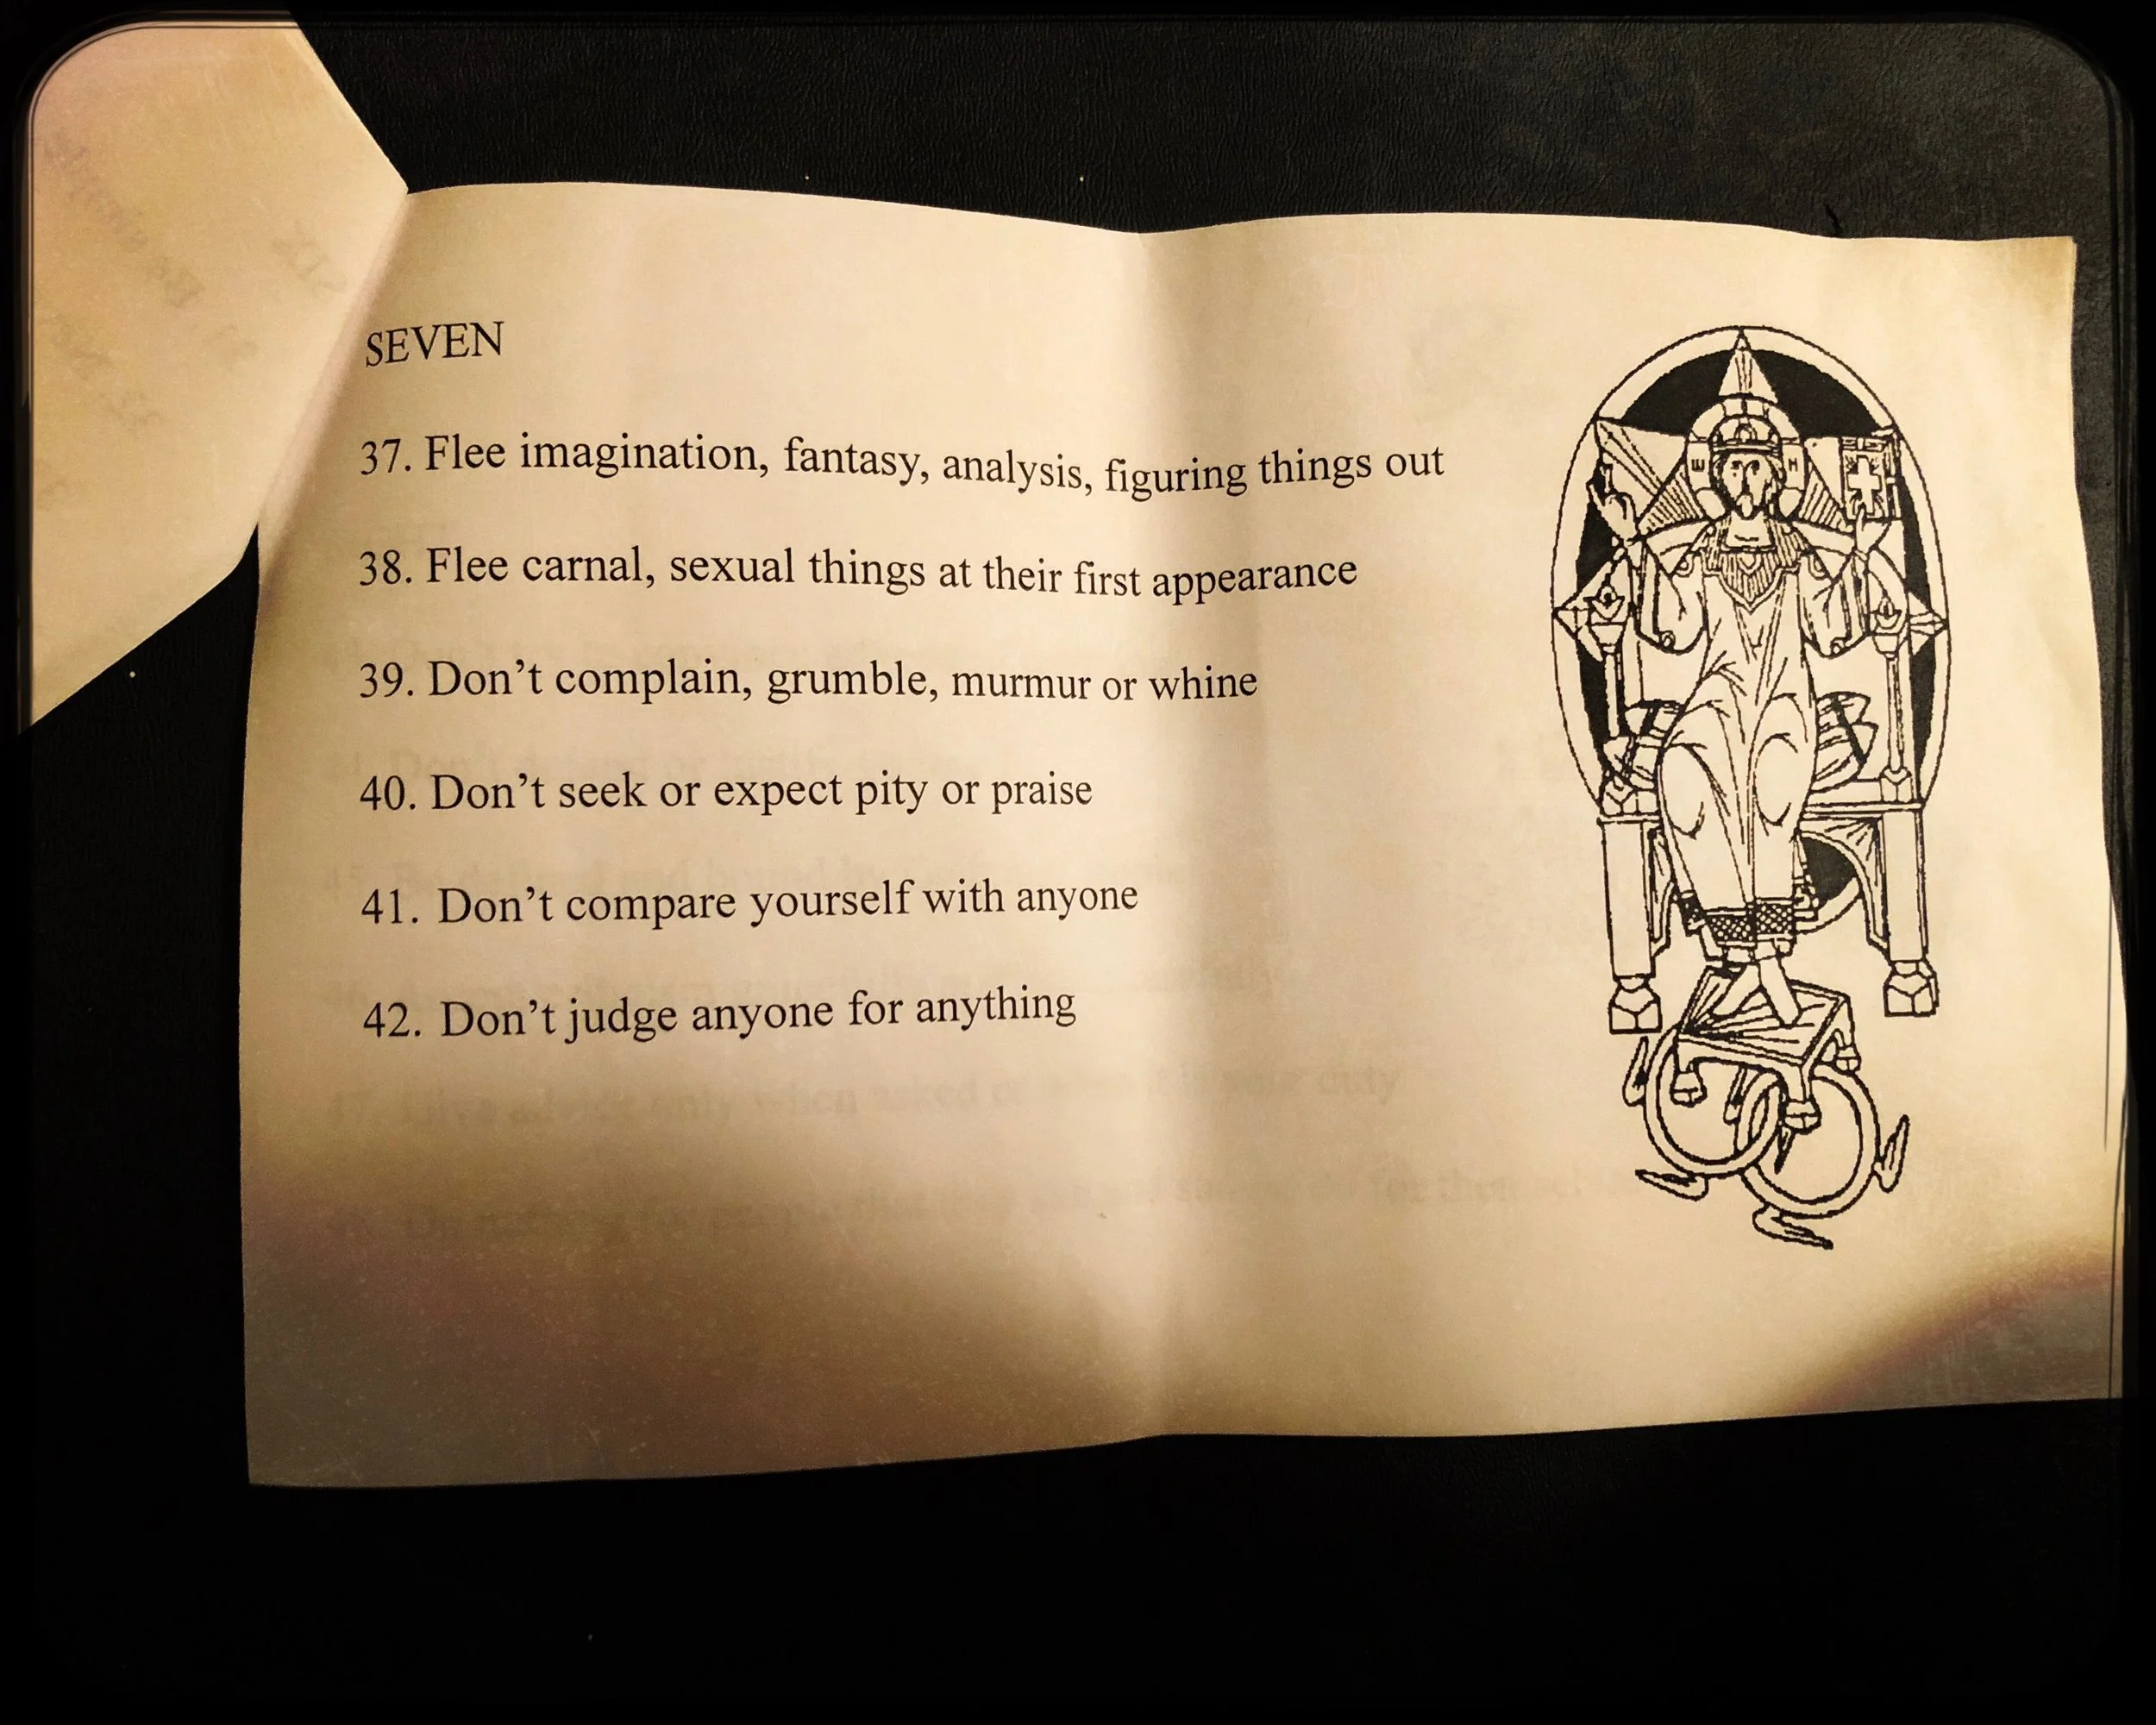 SEVEN
37. Flee imagination, fantasy, analysis, figuring things out
38. Flee carnal, sexual things at their first appearance
39. Don’t complain, grumble, murmur or whine
40. Don’t seek or expect pity or praise
41. Don’t compare yourself with anyone
42. Don’t judge anyone for anything